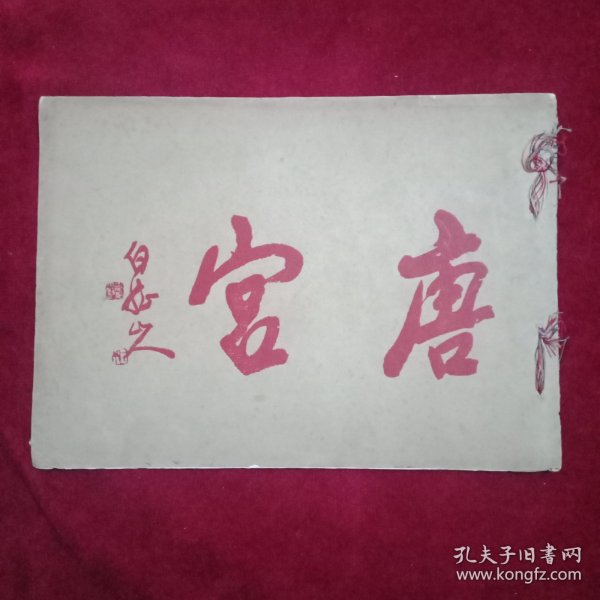 唐宫
孔夫子旧書网
www.kongfz.com